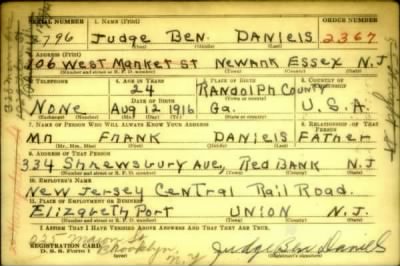 SERIAL NUMBER 1. NAME (Print) ORDER NUMBER
2796 Judge Ben DANIELS 2367
(First) (Middle) (Last)
2. ADDRESS (Print)
106 West Market St Newark Essex N.J.
(Number and street or R. F. D. number) (Town) (County) (State)
3. TELEPHONE 4. AGE IN YEARS 5. PLACE OF BIRTH 6. COUNTRY OF
24 RANdolph County
DATE OF BIRTH
NONE Aug 12 1916 Ga. U.S.A.
(Exchange) (Number) (Mo.) (Day) (Yr.) (State or country)
7. NAME OF PERSON WHO WILL ALWAYS KNOW YOUR ADDRESS 8. RELATIONSHIP OF THAT PERSON
Mr FRANK DANIELS FATHER
(Mr., Mrs., Miss) (First) (Middle) (Last)
9. ADDRESS OF THAT PERSON
334 Shrewsbury Ave, Red BANK N.J
(Number and street or R. F. D. number) (Town) (County) (State)
10. EMPLOYER'S NAME
New Jersey Central Rail Road.
11. PLACE OF EMPLOYMENT OR BUSINESS
Elizabeth Port UNION N.J.
(Number and street or R. F. D. number) (Town) (County) (State)
I AFFIRM THAT I HAVE VERIFIED ABOVE ANSWERS AND THAT THEY ARE TRUE.
REGISTRATION CARD Brooklyn, N.Y Judge Ben Daniels
D. S. S. Form 1 (Registrant's signature)